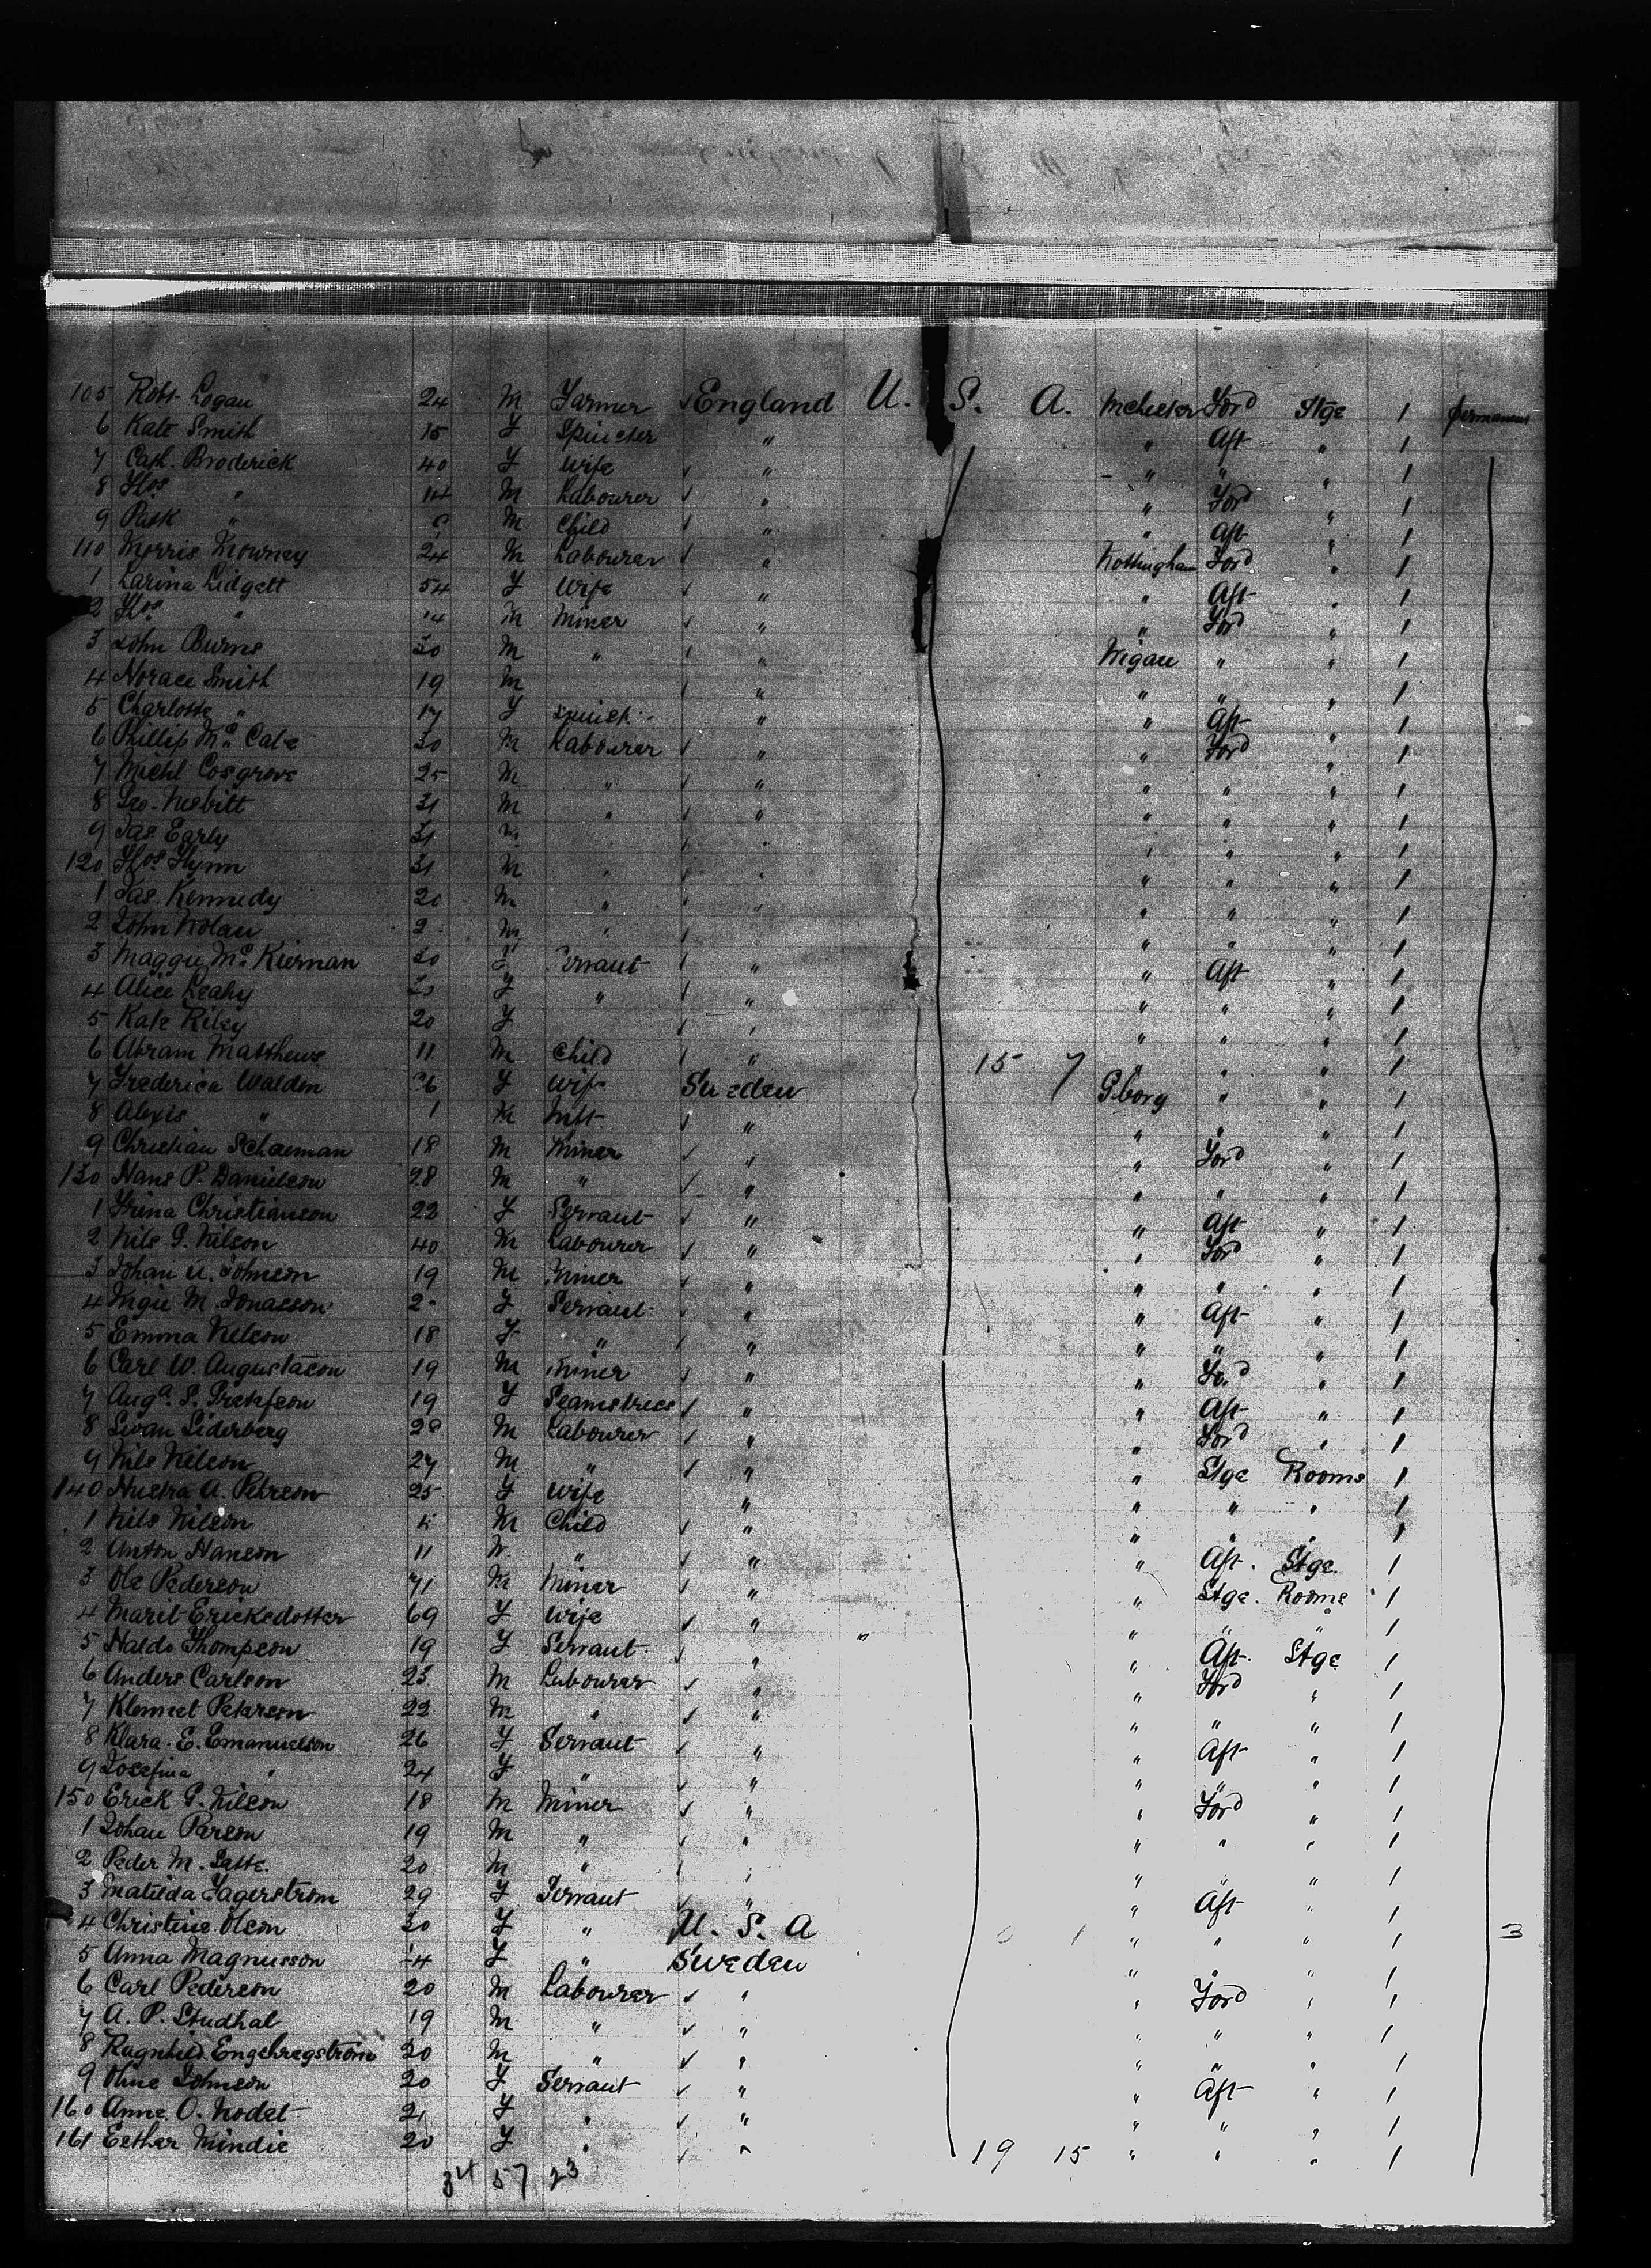 105 Robt Logan 24 M Farmer England U. S. A. Mchester Ford Stge 1 permanent
6 Kate Smith 15 F Spinster " " Aft " 1
7 Cath. Broderick 40 F Wife " " " " 1
8 Thos " 14 M Labourer " " Ford " 1
9 Patk " M Child " " Aft " 1
110 Morris Mowney 24 M Labourer " Nottingham Ford " 1
1 Larina Lidgett 54 F Wife " " Aft " 1
2 Thos " 14 M Miner " " Ford " 1
3 John Burns 30 M " " Wigan " " 1
4 Horace Smith 19 M " " " " 1
5 Charlotte " 17 F " " Aft " 1
6 Phillip Mc Cabe 30 M Labourer " " Ford " 1
7 Michl Cosgrove 25 M " " " " " 1
8 Geo. Nesbitt 31 M " " " " " 1
9 Jas Early 31 M " " " " " 1
120 Thos Flynn 31 M " " " " " 1
1 Jas. Kennedy 20 M " " " " " 1
2 John Nolan M " " " " 1
3 Maggie Mc Kiernan 20 F Servant " " Aft " 1
4 Alice Leahy F " " " " " 1
5 Kate Riley 20 F " " " " 1
6 Abram Matthews 11 M Child " 15 7 " " " 1
7 Frederica Walden F Wife Sweden Gborg " " 1
8 Alexis " 1 M Inft " " " " 1
9 Christian Schaeman 18 M Miner " " Ford " 1
130 Hans P. Danielson 28 M " " " " " 1
1 Irina Christianson 22 F Servant " " Aft " 1
2 Nils G. Nilson 40 M Labourer " " Ford " 1
3 Johan A. Johnson 19 M Miner " " " " 1
4 M. Jonasson F Servant " " Aft " 1
5 Emma Nelson 18 F " " " " " 1
6 Carl W. Augustason 19 M Miner " " Ford " 1
7 Auga. P. 19 F Seamstress " " Aft " 1
8 Swan Liderberg 28 M Labourer " " Ford " 1
9 Nils Nelson 27 M " " " Stge Rooms 1
140 A. Peterson 25 F Wife " " " " 1
1 Nils Nilson M Child " " " " 1
2 Anton Hanson 11 M " " " Aft. Stge. 1
3 Ole Pederson 71 M Miner " " Stge. Rooms 1
4 Maret Ericksdotter 69 F Wife " " " " 1
5 Haldo Thompson 19 F Servant " " Aft. Stge 1
6 Anders Carlson 23 M Labourer " " Ford " 1
7 Klemmet Peterson 22 M " " " " " 1
8 Klara. E. Emanuelson 26 F Servant " " Aft " 1
9 Josefina " 24 F " " " " " 1
150 Erick G. Nilson 18 M Miner " " Ford " 1
1 Johan Person 19 M " " " " " 1
2 Peder M. 20 M " " " " " 1
3 Matilda Fagerstrom 29 F Servant " " Aft " 1
4 Christine Olson 30 F " U. S. A 0 1 " " " 1 3
5 Anna Magnusson F " Sweden " " " 1
6 Carl Pederson 20 M Labourer " " Ford " 1
7 A. P. Studhal 19 M " " " " " 1
8 Ragnhild Engebregstrom 20 M " " " " " 1
9 Oline Johnson 20 F Servant " " Aft " 1
160 Anne O. Nodet 21 F " " " " " 1
161 Esther Mindie 20 F " " 19 15 " " " 1
34 57 23